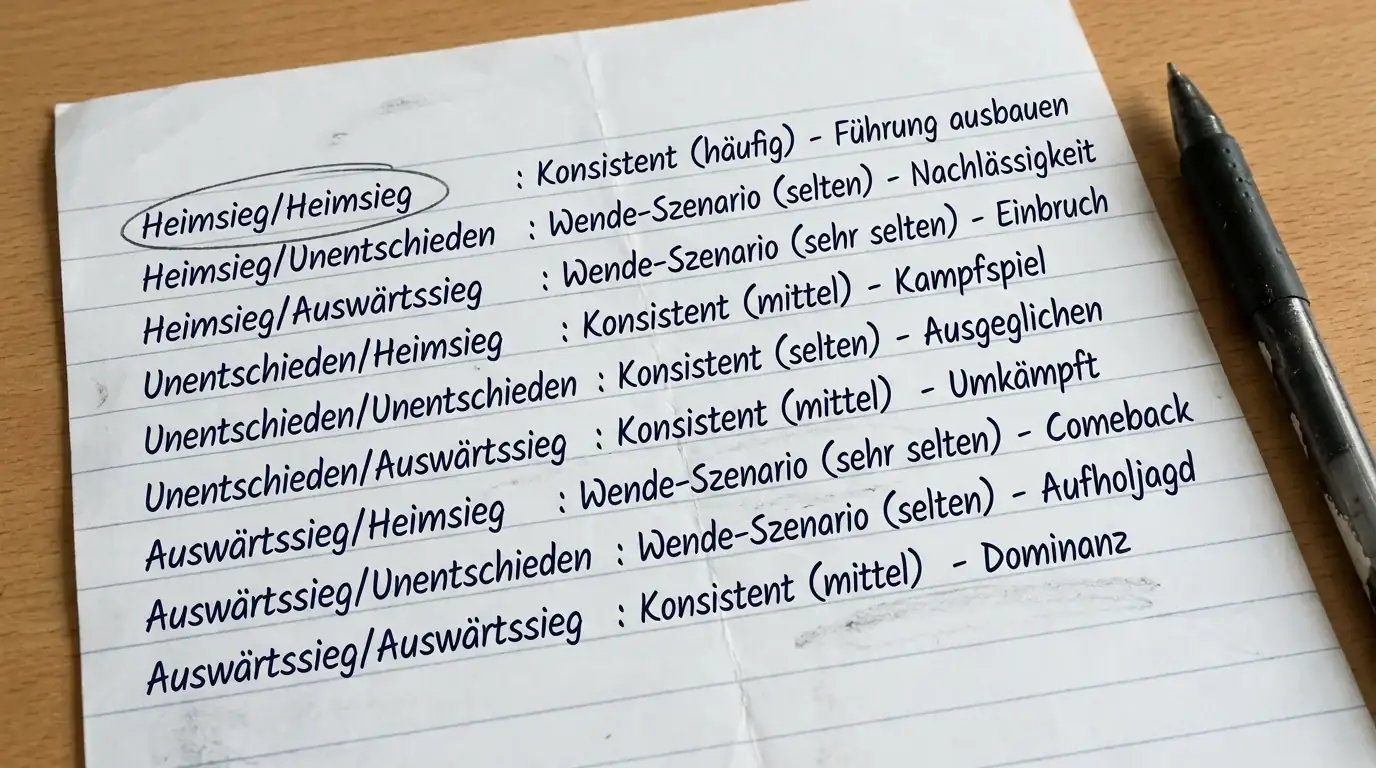 Heimsieg/Heimsieg : Konsistent (häufig) - Führung ausbauen
Heimsieg/Unentschieden : Wende-Szenario (selten) - Nachlässigkeit
Heimsieg/Auswärtssieg : Wende-Szenario (sehr selten) - Einbruch
Unentschieden/Heimsieg : Konsistent (mittel) - Kampfspiel
Unentschieden/Unentschieden : Konsistent (selten) - Ausgeglichen
Unentschieden/Auswärtssieg : Konsistent (mittel) - Umkämpft
Auswärtssieg/Heimsieg : Wende-Szenario (sehr selten) - Comeback
Auswärtssieg/Unentschieden : Wende-Szenario (selten) - Aufholjagd
Auswärtssieg/Auswärtssieg : Konsistent (mittel) - Dominanz